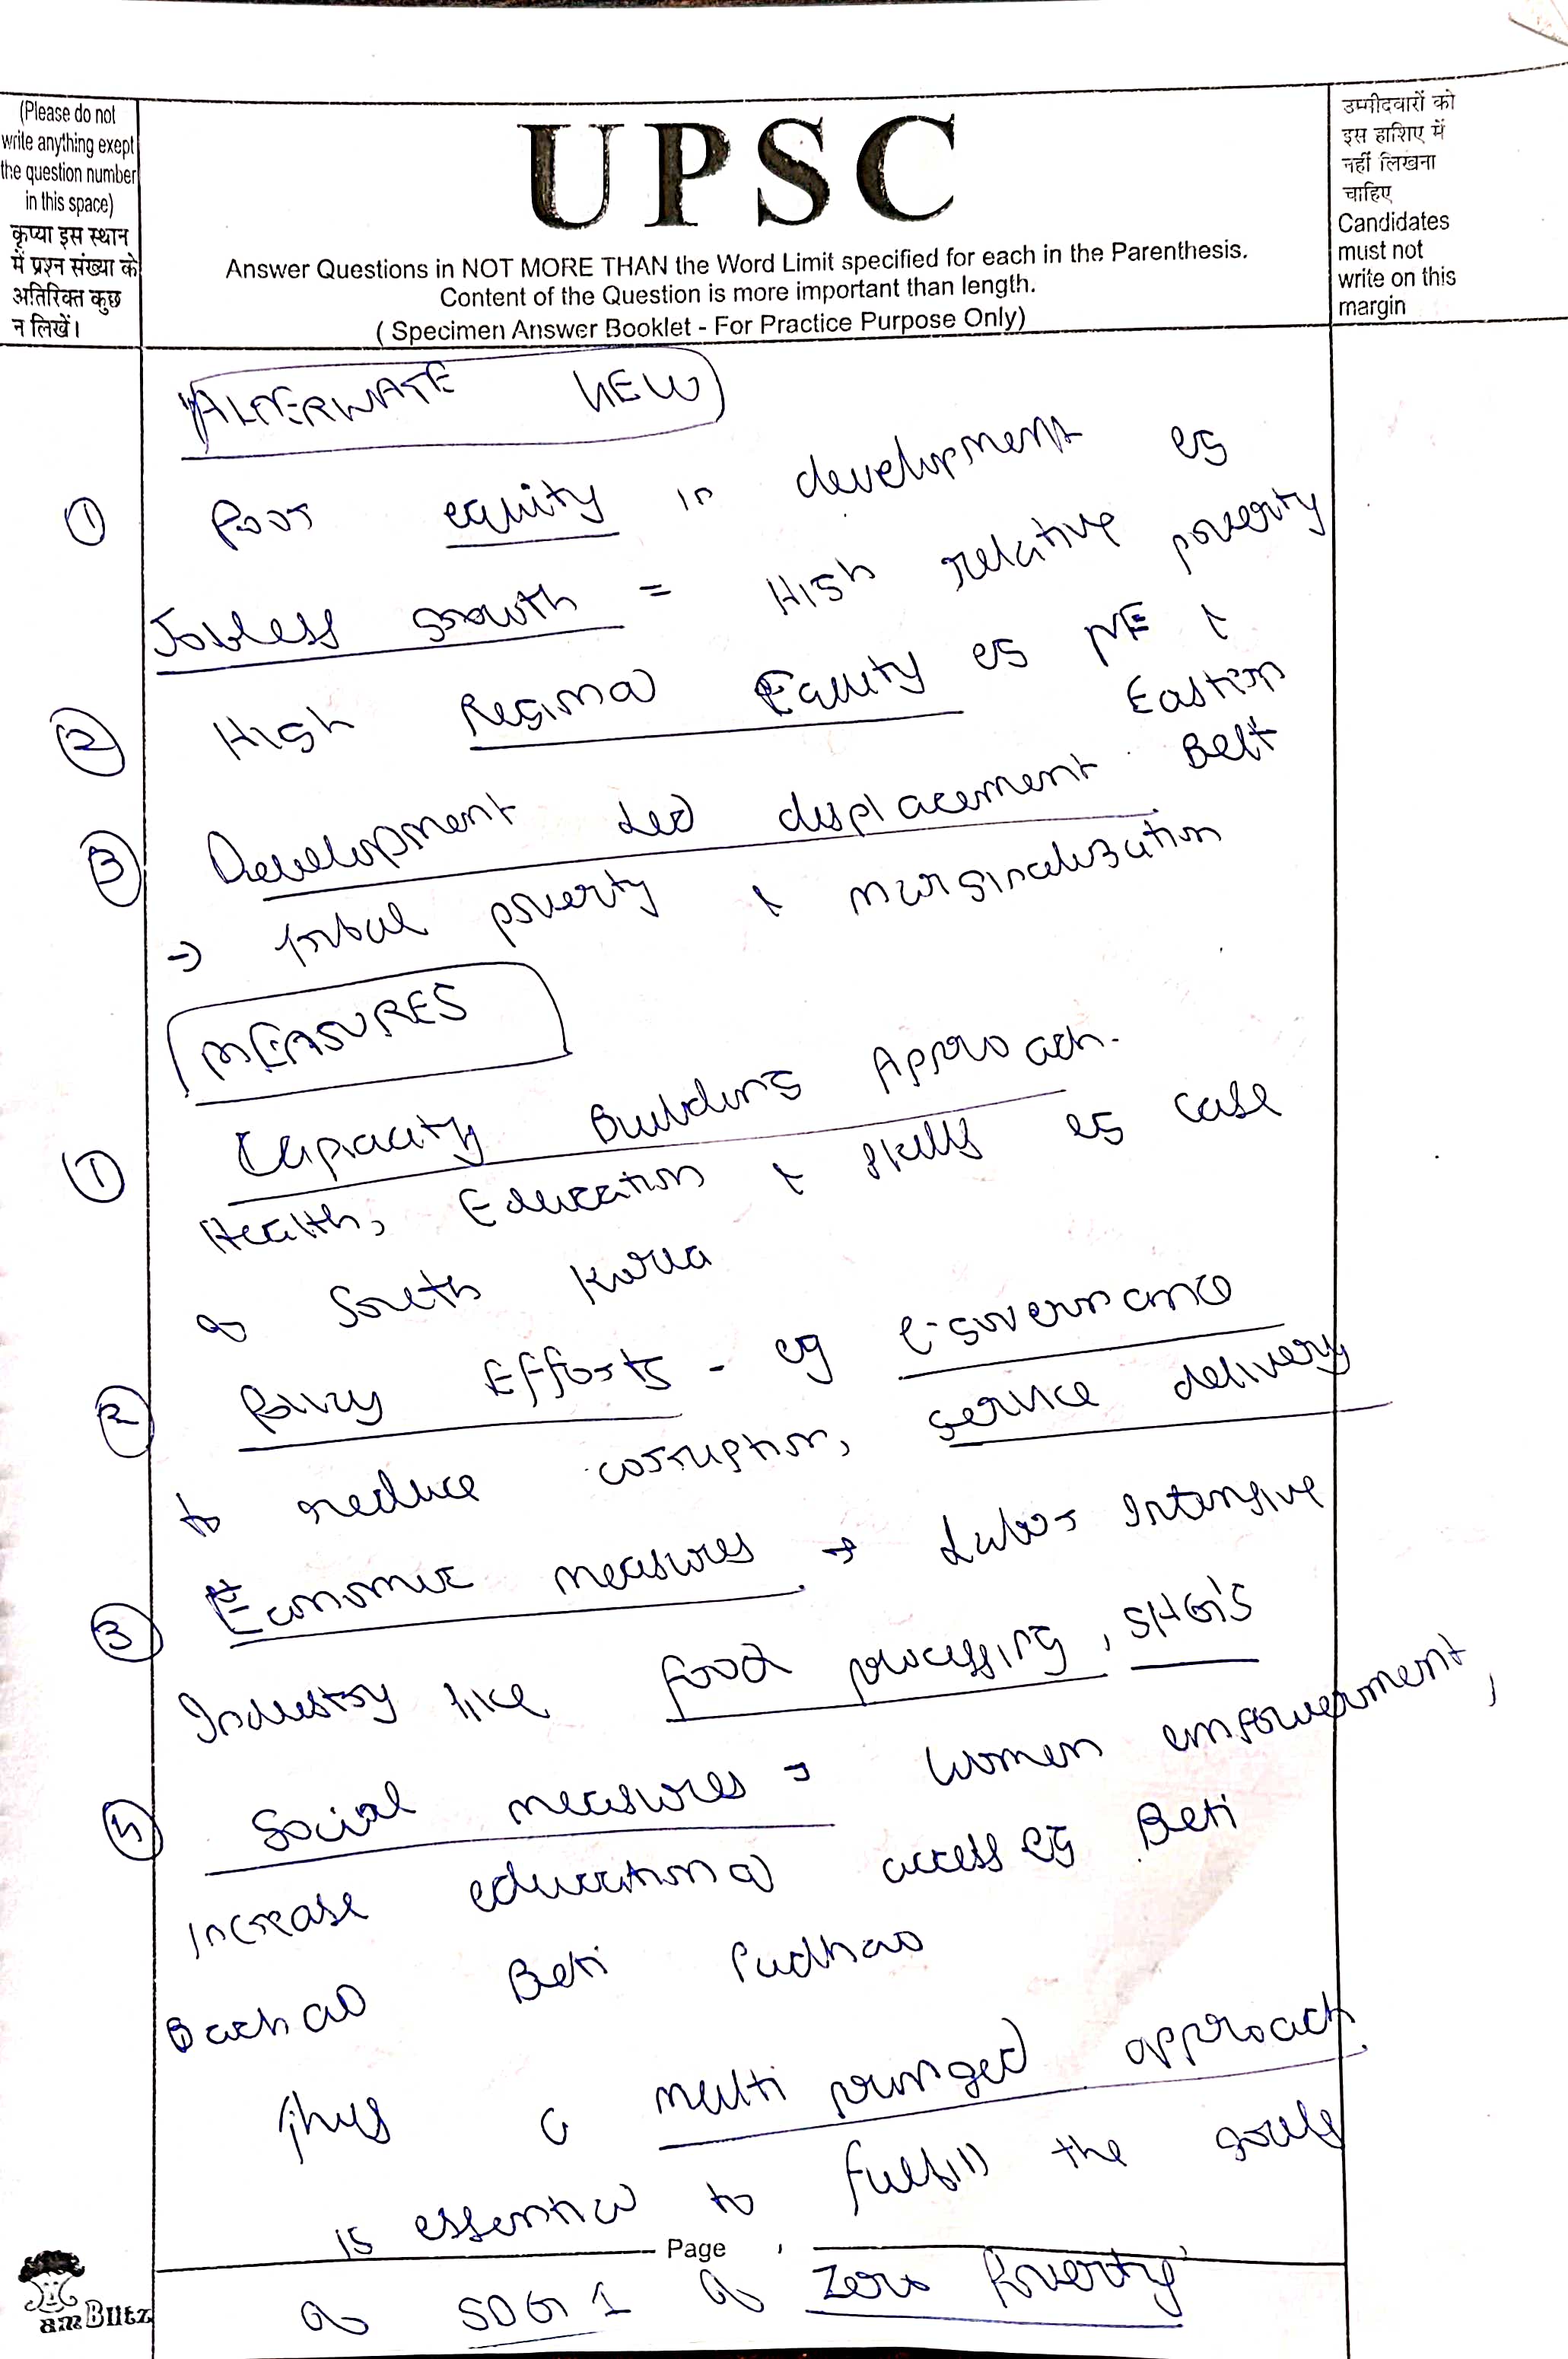 (Please do not
write anything exept
the question number
in this space)
कृप्या इस स्थान
में प्रश्न संख्या के
अतिरिक्त कुछ
न लिखें।
UPSC
Answer Questions in NOT MORE THAN the Word Limit specified for each in the Parenthesis.
Content of the Question is more important than length.
( Specimen Answer Booklet - For Practice Purpose Only)
उम्मीदवारों को
इस हाशिए में
नहीं लिखना
चाहिए
Candidates
must not
write on this
margin
ALTERNATE VIEW
① Poor equity in development eg
Jobless growth = High relative poverty
② High Regional Equity eg NE &
Eastern
Belt
③ Development Led displacement.
→ tribal poverty & marginalization
MEASURES
① Capacity Building Approach.
Health, Education & skills eg case
of South Korea
② Policy Efforts - eg e-governance
to reduce corruption, service delivery
③ Economic measures → Labor Intensive
Industry like food processing, SHG's
④ Social measures → women empowerment,
increase educational access eg Beti
Bachao Beti Padhao
Thus a multi pronged approach
is essential to fulfill the goals
Page
of SDG 1 of Zero Poverty'
am Blitz